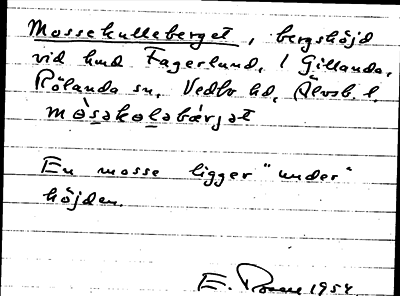 Mossekulleberget, bergshöjd
vid hmd Fagerlund, 1 Gillanda,
Rölanda sn, Vedbo hd, Älvsb. l.
mòsəkələbǽrjət
En mosse ligger "under"
höjden.
E. 1954